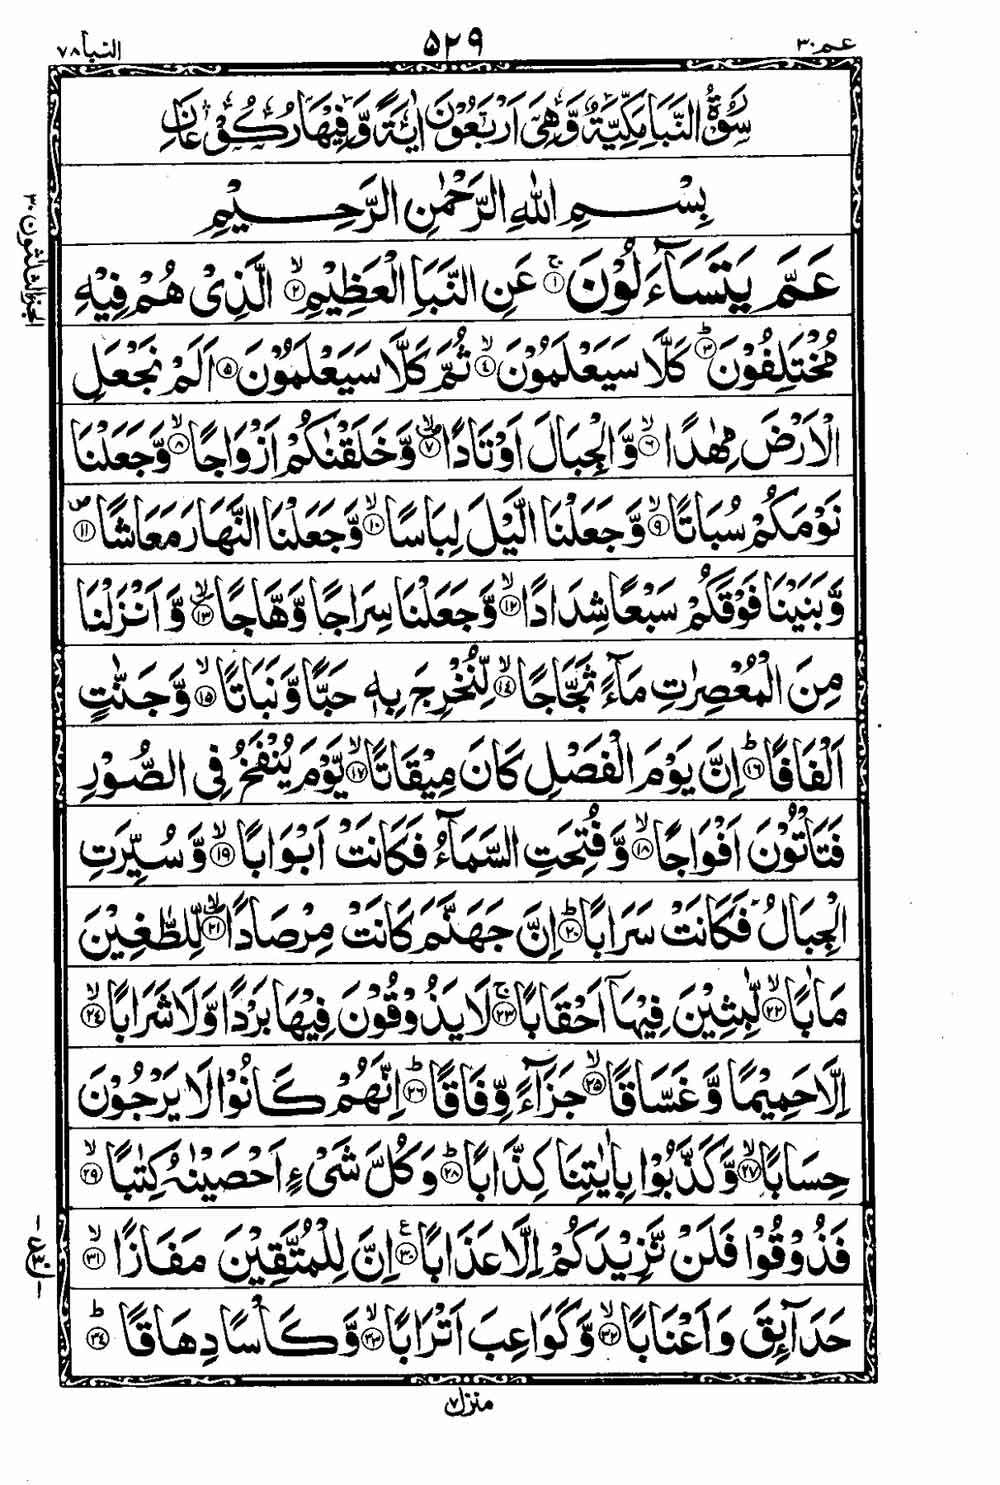 عم ٣٠
٥٢٩
النبا ٧٨
سُوْرَةُ النَّبَاِ مَكِّيَّةٌ وَّهِیَ اَرْبَعُوْنَ اٰيَةً وَّفِيْهَا رُكُوْعَانِ
بِسْمِ اللّٰهِ الرَّحْمٰنِ الرَّحِيْمِ
عَمَّ يَتَسَآءَلُوْنَ ۚ‏﴿۱﴾ عَنِ النَّبَاِ الْعَظِيْمِ ۙ‏﴿۲﴾ الَّذِیْ هُمْ فِيْهِ
مُخْتَلِفُوْنَ ؕ‏﴿۳﴾ كَلَّا سَيَعْلَمُوْنَ ۙ‏﴿۴﴾ ثُمَّ كَلَّا سَيَعْلَمُوْنَ ‏﴿۵﴾ اَلَمْ نَجْعَلِ
الْاَرْضَ مِهٰدًا ۙ‏﴿۶﴾ وَّالْجِبَالَ اَوْتَادًا ۙ‏﴿۷﴾ وَّخَلَقْنٰكُمْ اَزْوَاجًا ۙ‏﴿۸﴾ وَّجَعَلْنَا
نَوْمَكُمْ سُبَاتًا ۙ‏﴿۹﴾ وَّجَعَلْنَا الَّيْلَ لِبَاسًا ۙ‏﴿۱۰﴾ وَّجَعَلْنَا النَّهَارَ مَعَاشًا ۪‏﴿۱۱﴾
وَّبَنَيْنَا فَوْقَكُمْ سَبْعًا شِدَادًا ۙ‏﴿۱۲﴾ وَّجَعَلْنَا سِرَاجًا وَّهَّاجًا ۙ‏﴿۱۳﴾ وَّاَنْزَلْنَا
مِنَ الْمُعْصِرٰتِ مَآءً ثَجَّاجًا ۙ‏﴿۱۴﴾ لِّنُخْرِجَ بِهٖ حَبًّا وَّنَبَاتًا ۙ‏﴿۱۵﴾ وَّجَنّٰتٍ
اَلْفَافًا ؕ‏﴿۱۶﴾ اِنَّ يَوْمَ الْفَصْلِ كَانَ مِيْقَاتًا ۙ‏﴿۱۷﴾ يَّوْمَ يُنْفَخُ فِی الصُّوْرِ
فَتَاْتُوْنَ اَفْوَاجًا ۙ‏﴿۱۸﴾ وَّفُتِحَتِ السَّمَآءُ فَكَانَتْ اَبْوَابًا ۙ‏﴿۱۹﴾ وَّسُيِّرَتِ
الْجِبَالُ فَكَانَتْ سَرَابًا ؕ‏﴿۲۰﴾ اِنَّ جَهَنَّمَ كَانَتْ مِرْصَادًا ۙ‏﴿۲۱﴾ لِّلطّٰغِيْنَ
مَاٰبًا ۙ‏﴿۲۲﴾ لّٰبِثِيْنَ فِيْهَآ اَحْقَابًا ۚ‏﴿۲۳﴾ لَا يَذُوْقُوْنَ فِيْهَا بَرْدًا وَّلَا شَرَابًا ۙ‏﴿۲۴﴾
اِلَّا حَمِيْمًا وَّغَسَّاقًا ۙ‏﴿۲۵﴾ جَزَآءً وِّفَاقًا ؕ‏﴿۲۶﴾ اِنَّهُمْ كَانُوْا لَا يَرْجُوْنَ
حِسَابًا ۙ‏﴿۲۷﴾ وَّكَذَّبُوْا بِاٰيٰتِنَا كِذَّابًا ؕ‏﴿۲۸﴾ وَكُلَّ شَیْءٍ اَحْصَيْنٰهُ كِتٰبًا ۙ‏﴿۲۹﴾
فَذُوْقُوْا فَلَنْ نَّزِيْدَكُمْ اِلَّا عَذَابًا ‏﴿۳۰﴾ ع اِنَّ لِلْمُتَّقِيْنَ مَفَازًا ۙ‏﴿۳۱﴾
حَدَآئِقَ وَاَعْنَابًا ۙ‏﴿۳۲﴾ وَّكَوَاعِبَ اَتْرَابًا ۙ‏﴿۳۳﴾ وَّكَاْسًا دِهَاقًا ؕ‏﴿۳۴﴾
منزل ٧
الجزء الثلثون ٣٠